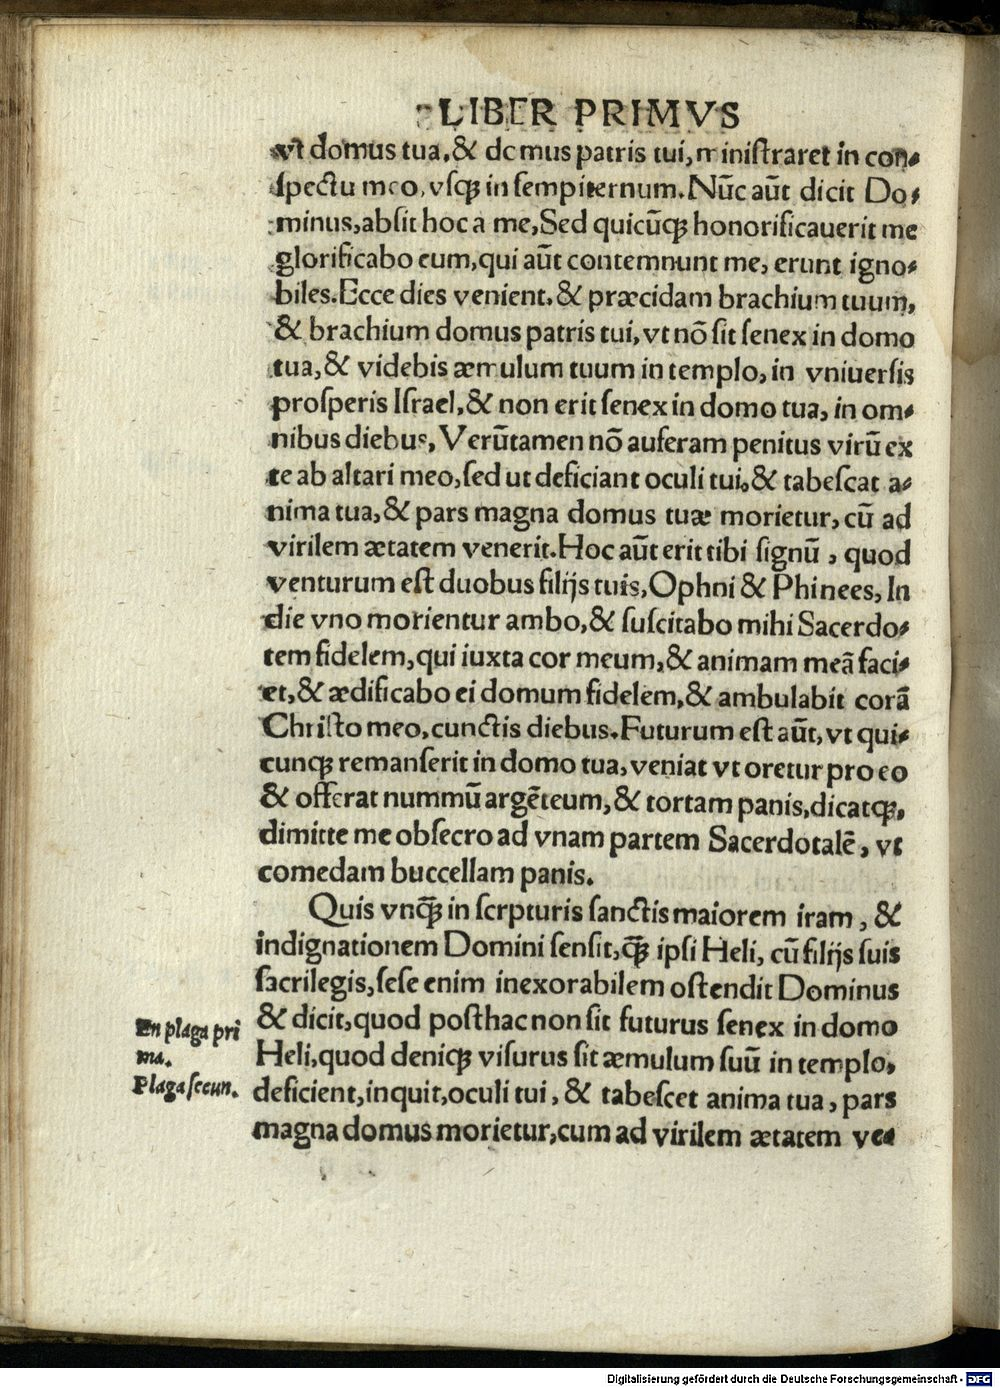 LIBER PRIMVS
vt domus tua, & domus patris tui, ministraret in con-
spectu meo, vsqꝫ in sempiternum. Nūc aūt dicit Do-
minus, absit hoc a me, Sed quicūqꝫ honorificauerit me
glorificabo eum, qui aūt contemnunt me, erunt igno-
biles. Ecce dies venient, & præcidam brachium tuum,
& brachium domus patris tui, vt nō sit senex in domo
tua, & videbis æmulum tuum in templo, in vniuersis
prosperis Israel, & non erit senex in domo tua, in om-
nibus diebus, Verūtamen nō auferam penitus virū ex
te ab altari meo, sed ut deficiant oculi tui, & tabescat a-
nima tua, & pars magna domus tuæ morietur, cū ad
virilem ætatem venerit. Hoc aūt erit tibi signū, quod
venturum est duobus filijs tuis, Ophni & Phinees, In
die vno morientur ambo, & suscitabo mihi Sacerdo-
tem fidelem, qui iuxta cor meum, & animam meā faci-
et, & ædificabo ei domum fidelem, & ambulabit corā
Christo meo, cunctis diebus. Futurum est aūt, vt qui-
cunqꝫ remanserit in domo tua, veniat vt oretur pro eo
& offerat nummū argēteum, & tortam panis, dicatqꝫ,
dimitte me obsecro ad vnam partem Sacerdotalē, vt
comedam buccellam panis.
Quis vnq̄ꝫ in scrpturis sanctis maiorem iram, &
indignationem Domini sensit, q̄ꝫ ipsi Heli, cū filijs suis
sacrilegis, sese enim inexorabilem ostendit Dominus
& dicit, quod posthac non sit futurus senex in domo
Heli, quod deniqꝫ visurus sit æmulum suū in templo,
deficient, inquit, oculi tui, & tabescet anima tua, pars
magna domus morietur, cum ad virilem ætatem ve-
En plaga pri
ma.
Plaga secun.
Digitalisierung gefördert durch die Deutsche Forschungsgemeinschaft - DFG